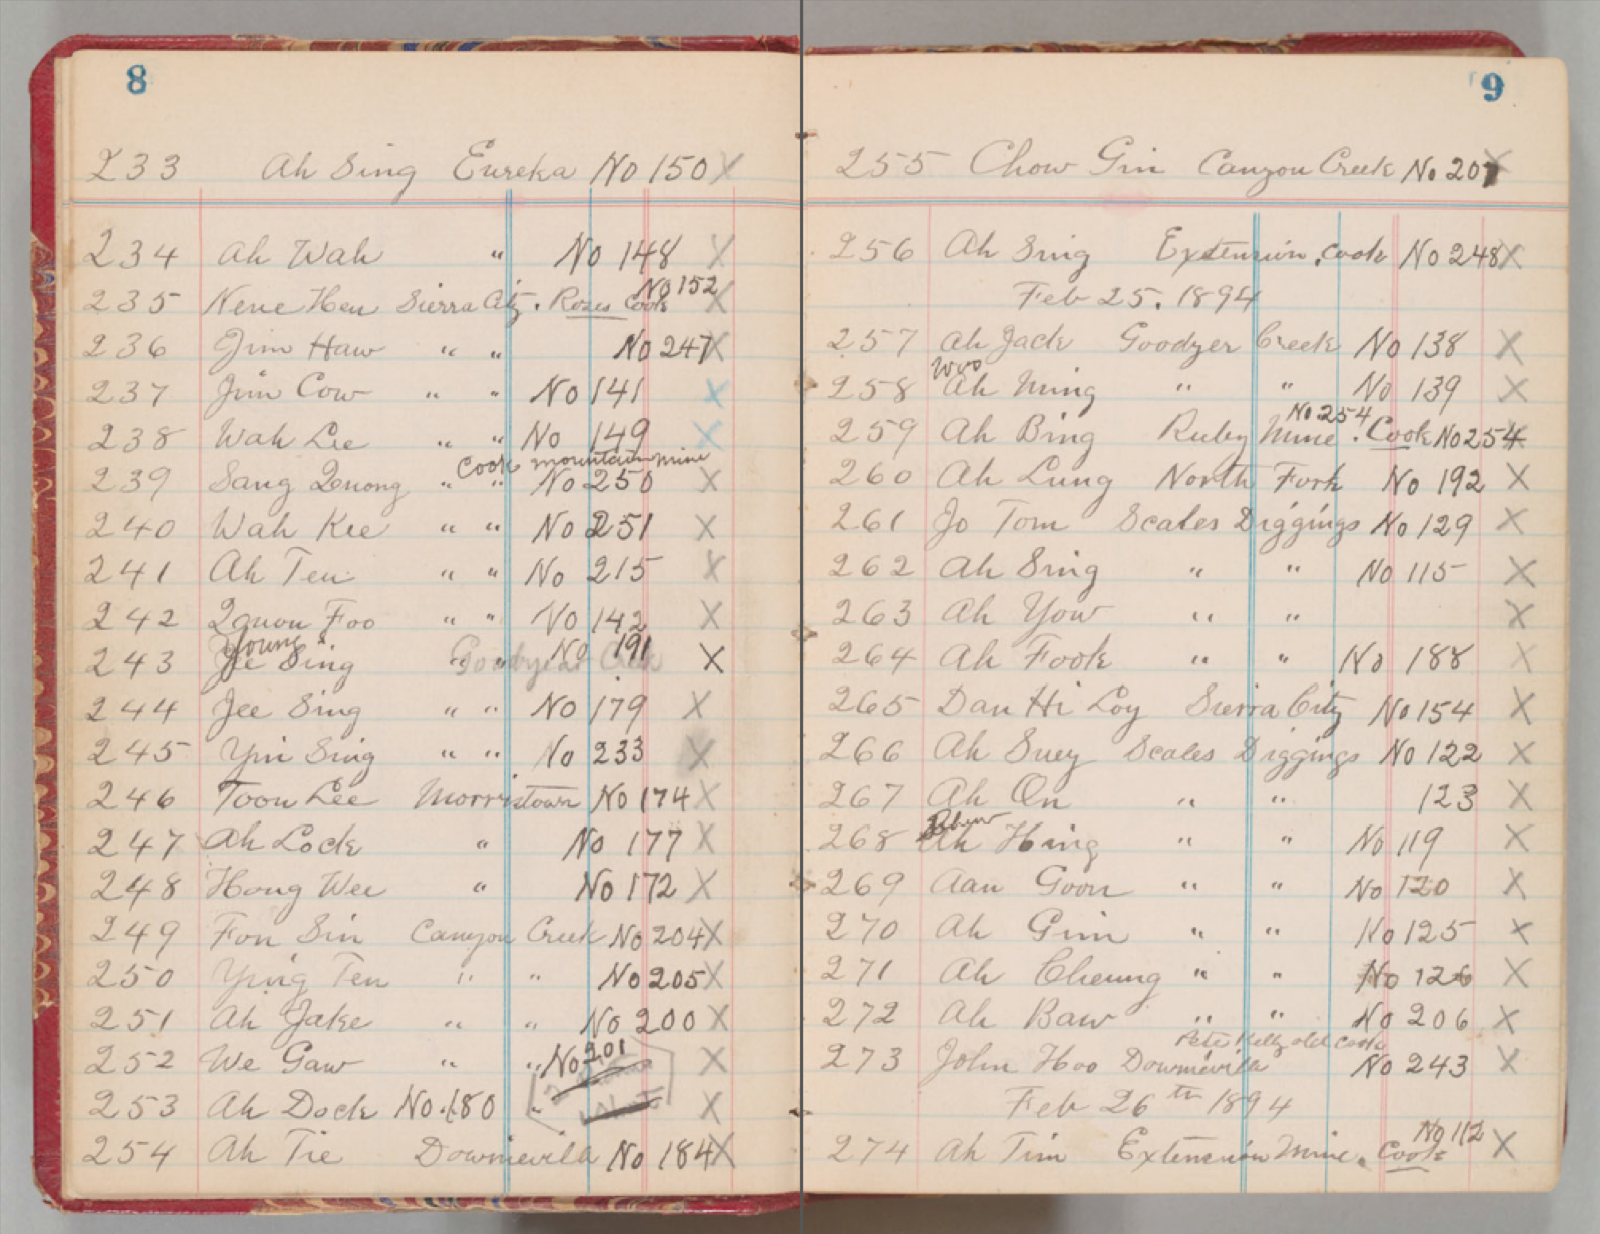 8
233 Ah Sing Eureka No 150 X
234 Ah Wah " No 148 X
No 152
235 Nene Hen Sierra City. Roses Cook X
236 Jim Haw " " No 247 X
237 Jim Cow " " No 141 X
238 Wah Lee " " No 149 X
Cook mountain mine
239 Sang Quong " " No 250 X
240 Wah Kee " " No 251 X
241 Ah Ten " " No 215 X
242 Quon Foo " " No 142 X
Young No 191
243 Je Sing " " Goodyear Creek X
244 Jee Sing " " No 179 X
245 Yin Sing " " No 233 X
246 Toon Lee Morristown No 174 X
247 Ah Lock " No 177 X
248 Hong Wee " No 172 X
249 Fon Sin Canyon Creek No 204 X
250 Ying Ten " " No 205 X
251 Ah Jake " " No 200 X
252 We Gaw " " No 201 X
253 Ah Dock No. 180 " X
254 Ah Tie Downievilla No 184 X
9
255 Chow Gin Canyon Creek No 207 X
256 Ah Sing Extension. Cook No 248 X
Feb 25. 1894
257 Ah Jack Goodyer Creek No 138 X
Woo
258 Ah Ming " " No 139 X
No. 254
259 Ah Bing Ruby Mine. Cook No 254 X
260 Ah Lung North Fork No 192 X
261 Jo Tom Scales Diggings No 129 X
262 Ah Sing " " No 115 X
263 Ah Yow " " X
264 Ah Fook " " No 188 X
265 Dan Hi Loy Sierra City No 154 X
266 Ah Suey Scales Diggings No 122 X
267 Ah On " " 123 X
268 Ah Hing " " No 119 X
269 Aan Goon " " No 120 X
270 Ah Gim " " No 125 X
271 Ah Cheung " " No 126 X
272 Ah Baw " " No 206 X
Pete Kelly old cook
273 John Hoo Downievilla No 243 X
Feb 26th 1894
No 112
274 Ah Tim Extension Mine. Cook X